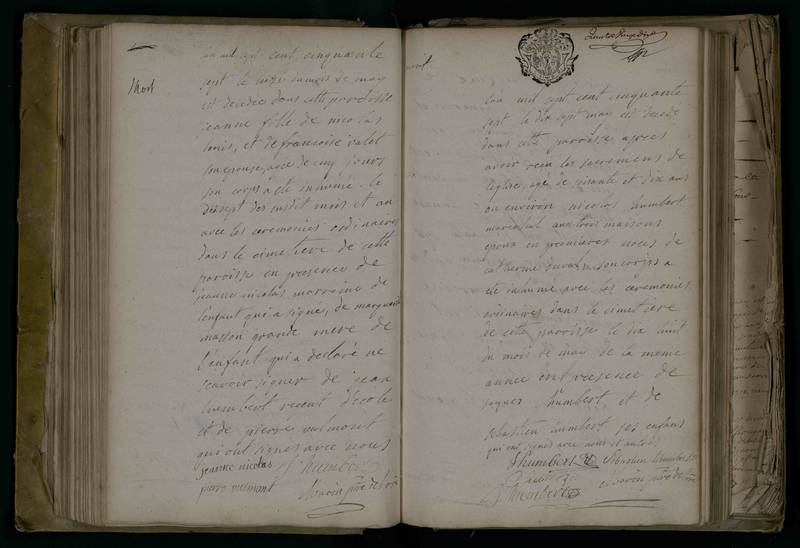 Mort
an mil sept cent cinquante
sept le seize du mois de may
est decedee dans cette paroisse
jeanne fille de nicolas
louis, et de francoise valet
son epouse, agee de cinq jours
son corps a ete inhumé le
dixsept des susdit mois et an
avec les ceremonies ordinaires
dans le cimetiere de cette
paroisse en presence de
jeanne nicolas marraine de
l'enfant qui a signé, de marguerite
masson grande mere de
l'enfant qui a declaré ne
scavoir signer de jean
humbert regent d'ecole
et de pierre vulmont
qui ont signés avec nous
jeanne nicolas J humbert
piere vulmont
L'an mil sept cent cinquante
sept le dix sept may est decede
dans cette paroisse apres
avoir recu les sacremens de
l'eglise, agé de soixante et dix ans
ou environ nicolas humbert
marechal aux trois maisons
epoux en premieres noces de
catherine son corps a
ete inhumé avec les ceremonies
ordinaires dans le cimetiere
de cette paroisse le dix huit
du mois de may de la meme
annee en presence de
jaques humbert et de
sebastien humbert ses enfans
qui ont signés avec nous
J humbert sebastien humbert
J humbert